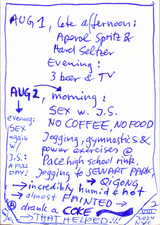 AUG 1, late afternoon:
Aperol Spritz &
Hard Seltzer
Evening:
3 beer & TV
AUG 2, morning:
SEX w. J.S.
NO COFFEE, NO FOOD
Jogging, gymnastics &
power exercises @
Pace high school rink,
Jogging to SEWART PARK
→ QIGONG
→ incredibly humid & hot
→ almost FAINTED →
drank a COKE
→ THAT HELPED!!!
evening:
SEX
again
w/
J.S.:
A FULL
DAY!
2
VIII
2024
NYC